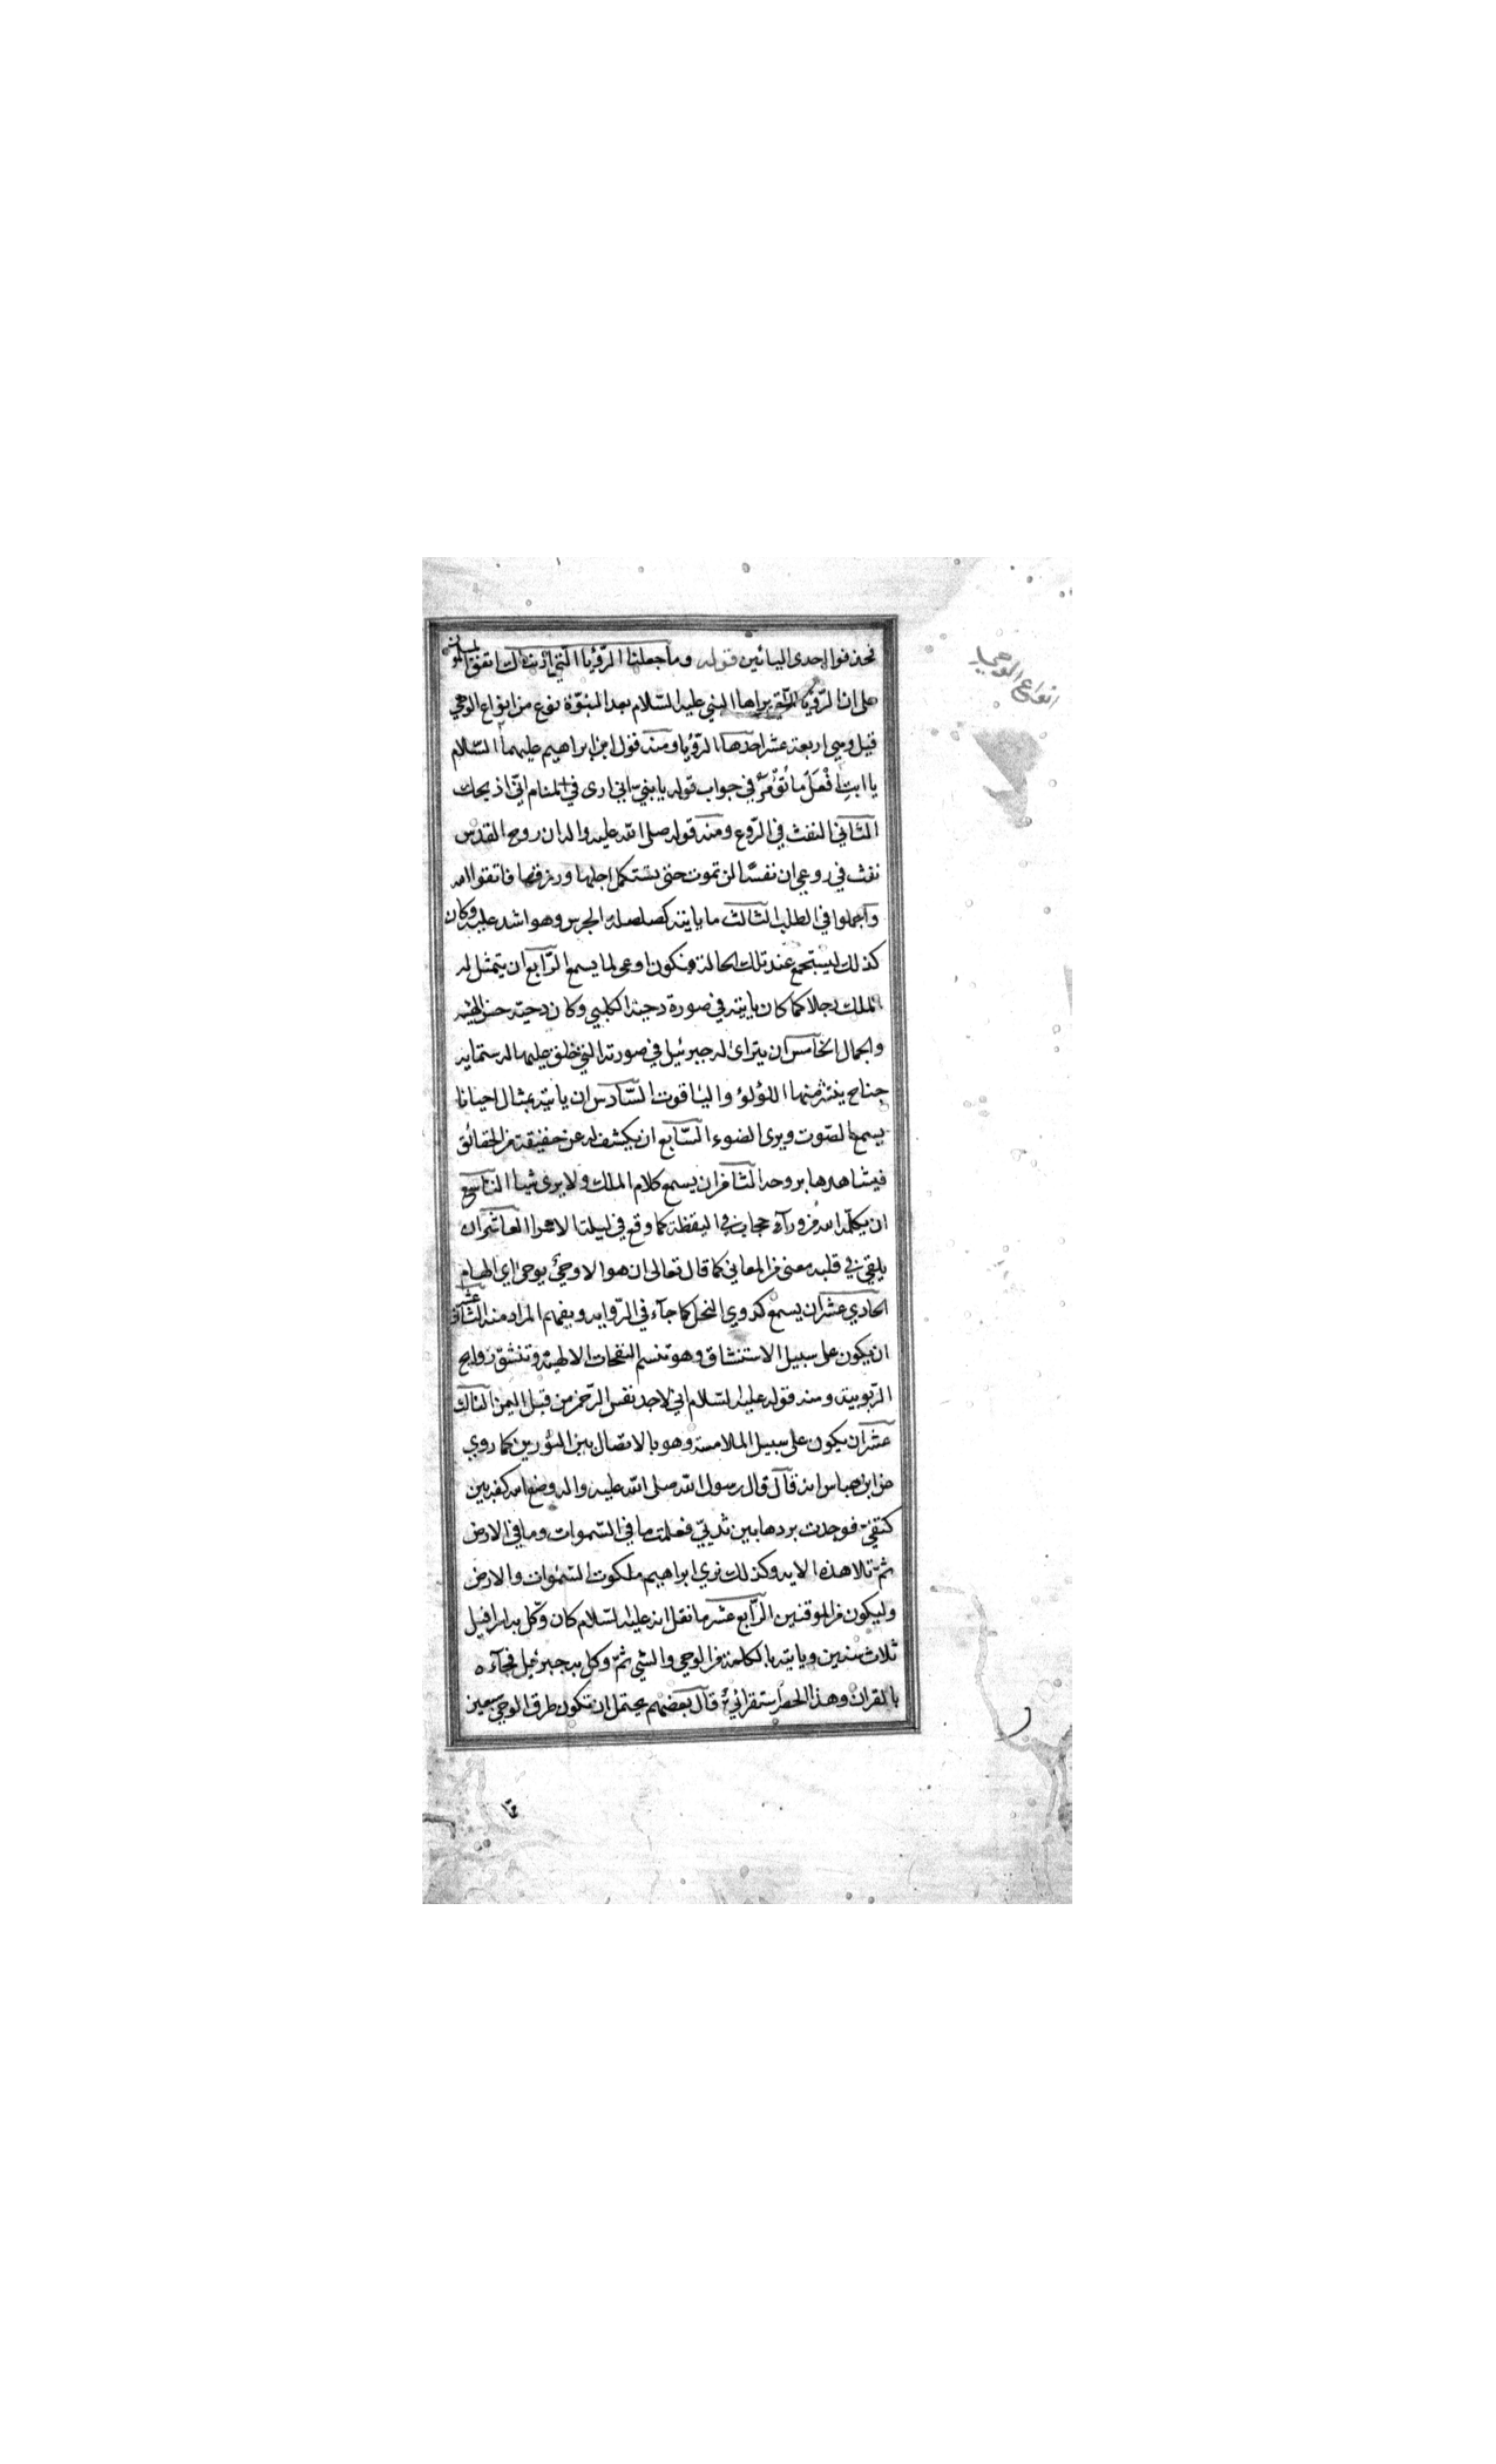 فحذفوا احدى اليائين قوله وما جعلنا الرّؤيا التي اريناك اتفق المسلمون
على ان الرّؤيا التي يراها النبي عليه السّلام بعد النبوّة نوع من انواع الوحي
قيل وهي اربعة عشر احدها الرّؤيا ومنه قول ابن ابراهيم عليهما السّلام
يا ابتِ افْعَلْ ما تُؤْمَرُ في جواب قوله يا بنيّ اني ارى في المنام انّي اذبحك
الثاني النفث في الرّوع ومنه قوله صلى الله عليه واله ان روح القدس
نفث في روعي ان نفسًا لن تموت حتى تستكمل اجلها ورزقها فاتقوا الله
واجملوا في الطلب الثالث ما ياتيه كصلصلة الجرس وهو اشد عليه وكان
كذلك ليستجمع عند تلك الحالة فيكون اوعى لما يسمع الرّابع ان يتمثل له
الملك رجلا كما كان ياتيه في صورة دحية الكلبي وكان دحية حسن الهيئة
والجمال الخامس ان يتراى له جبرئيل في صورته التي خلق عليها له ستماية
جناح ينتثر منها اللؤلؤ والياقوت السّادس ان ياتيه بمثال احيانا
يسمع الصّوت ويرى الضوء السّابع ان يكشف له عن حقيقة من الحقائق
فيشاهدها بروحه الثامن ان يسمع كلام الملك ولا يرى شيا التاسع
ان يكلّمه الله من ورآء حجاب في اليقظة كما وقع في ليلة الاسرا العاشر ان
يلقي في قلبه معنى من المعاني كما قال تعالى ان هو الا وحيٌ يوحىٰ اي الهام
الحادي عشر ان يسمع كدوي النحل كما جآء في الرّواية ويفهم المراد منه الثاني عشر
ان يكون على سبيل الاستنشاق وهو تنسم النفحات الالهيّة وتنشّق روايح
الرّبوبية ومنه قوله عليه السّلام اني لاجد نفس الرّحمن من قبل اليمن الثالث
عشر ان يكون على سبيل الملامسة وهو بالاتصال بين النّورين كما روي
عن ابن عباس انه قال قال رسول الله صلى الله عليه واله وضع الله كفه بين
كتفيّ فوجدت بردها بين ثدييّ فعلمت ما في السّموات وما في الارض
ثمّ تلا هذه الاية وكذلك نري ابراهيم ملكوت السّمٰوات والارض
وليكون من الموقنين الرّابع عشر ما نقل انه عليه السّلام كان وكّل به اسرافيل
ثلاث سنين وياتيه بالكلمة من الوحي والشي ثمّ وكل به جبرئيل فجآءه
بالقران وهذا الحصر استقرائيّ قال بعضهم يحتمل ان تكون طرق الوحي سبعين
انواع الوحي